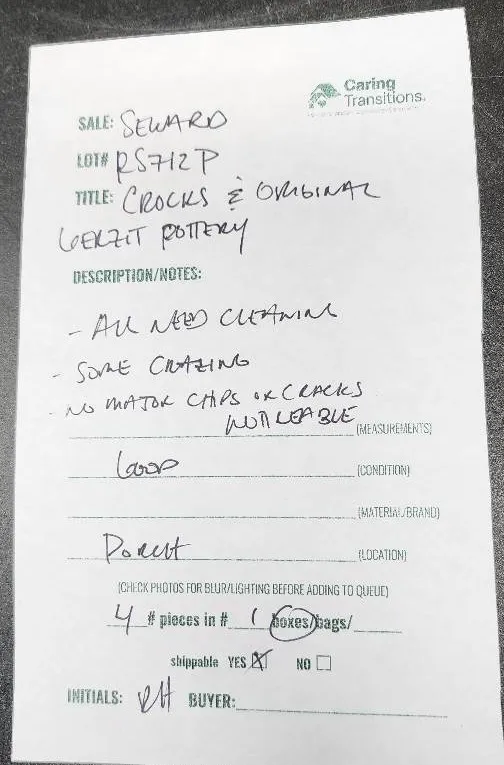 Caring
Transitions.
SALE: SEWARD
LOT# RS712P
TITLE: CROCKS & ORIGINAL
GERZIT POTTERY
DESCRIPTION/NOTES:
- ALL NEED CLEANING
- SOME CRAZING
- NO MAJOR CHIPS OR CRACKS
NOTICEABLE (MEASUREMENTS)
GOOD (CONDITION)
(MATERIAL/BRAND)
PORCH (LOCATION)
(CHECK PHOTOS FOR BLUR/LIGHTING BEFORE ADDING TO QUEUE)
4 # pieces in # 1 boxes/bags/
shippable YES ☒ NO ☐
INITIALS: RH BUYER: